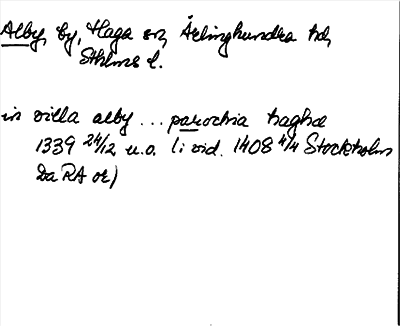 Alby, by, Haga sn, Ärlinghundra hd,
Sthlms l.
in villa alby ... parochia hagha
1339 24/12 u.o. (i vid. 1408 4/4 Stockholm
Da RA or)